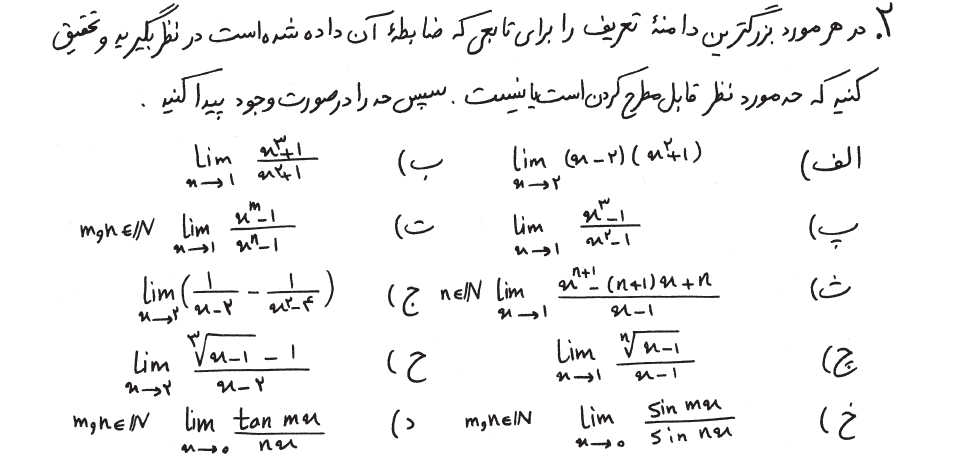 ۲. در هر مورد بزرگترین دامنهٔ تعریف را برای تابعی که ضابطهٔ آن داده شده است در نظر بگیرید و تحقیق
کنید که حد مورد نظر قابل مطرح کردن است یا نیست. سپس حد را در صورت وجود پیدا کنید.
الف) lim_{x→۲} (x-۲)(x^۲+1) ب) lim_{x→1} (x^۳+1)/(x^۲+1)
پ) lim_{x→1} (x^۳-1)/(x^۲-1) ت) lim_{x→1} (x^m-1)/(x^n-1) m,n∈ℕ
ث) lim_{x→1} (x^{n+1}-(n+1)x+n)/(x-1) n∈ℕ ج) lim_{x→۲} (1/(x-۲) - 1/(x^۲-۴))
چ) lim_{x→1} ⁿ√(x-1)/(x-1) ح) lim_{x→۲} (∛(x-1) - 1)/(x-۲)
خ) lim_{x→۰} sin mx/sin nx m,n∈ℕ د) lim_{x→۰} tan mx/nx m,n∈ℕ